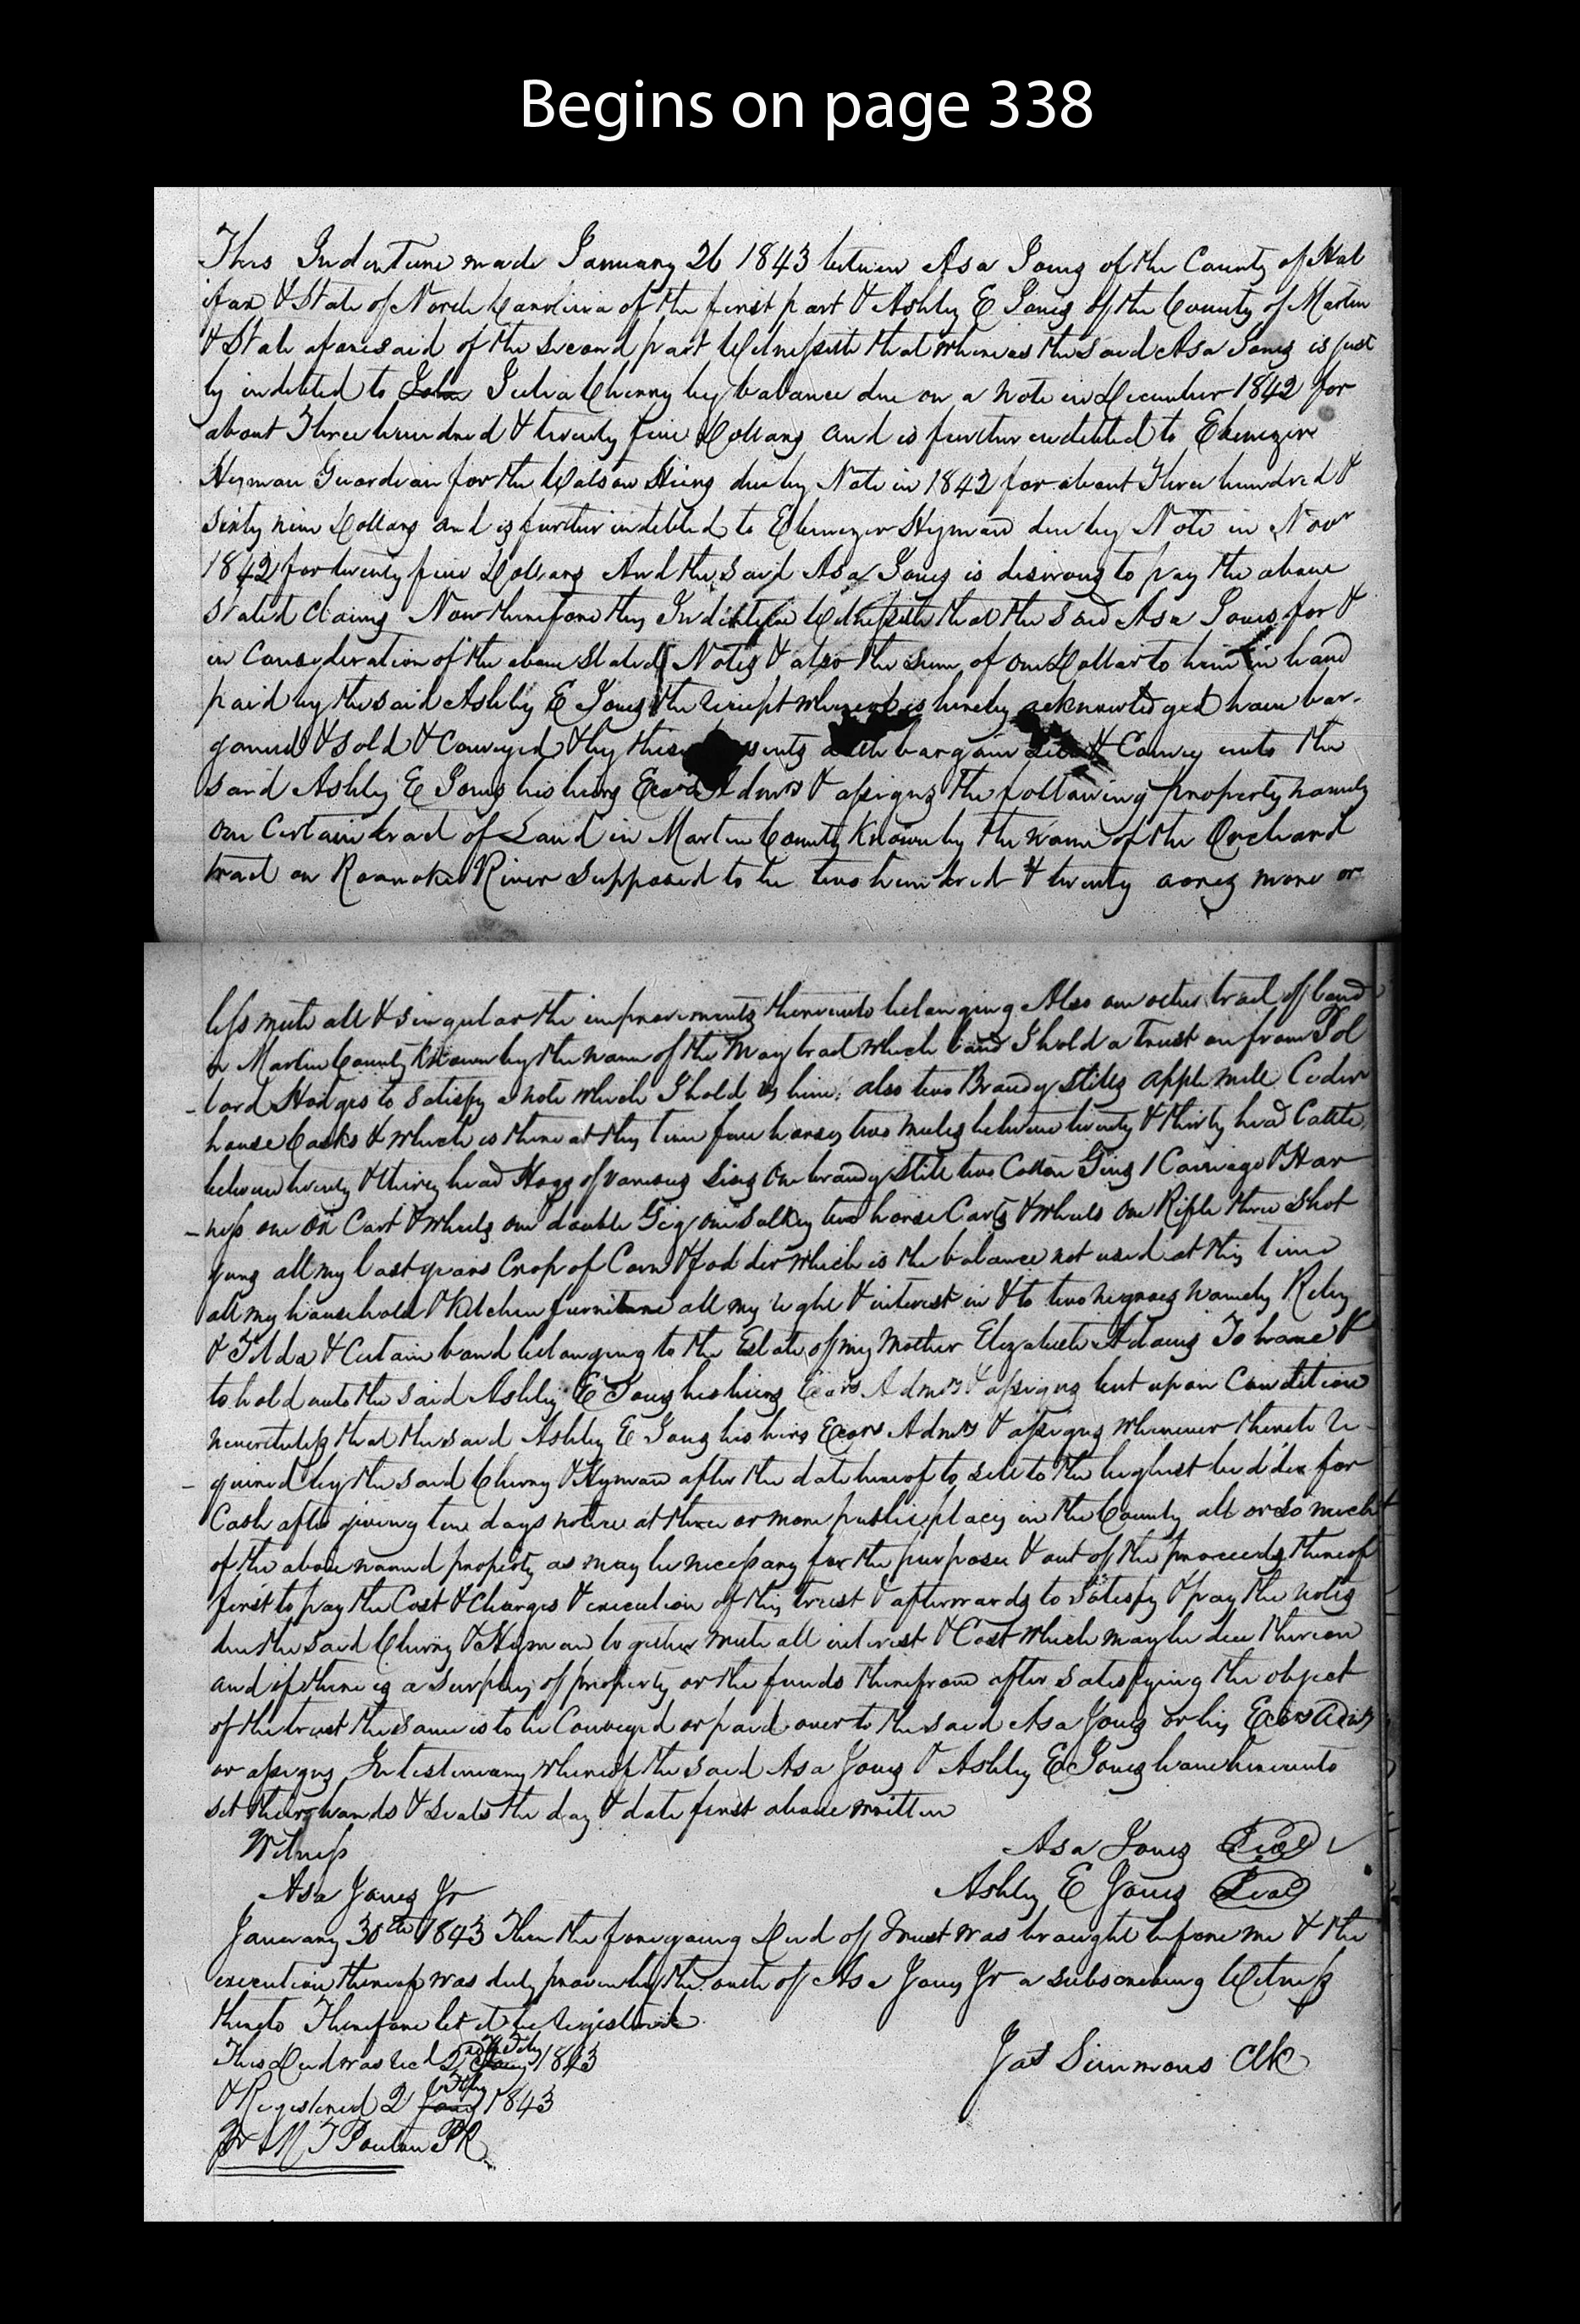 Begins on page 338
This Indenture made January 26 1843 between Asa Jones of the County of Hal
ifax & State of North Carolina of the first part & Ashley E Jones of the County of Martin
& State aforesaid of the second part Witnesseth that whereas the said Asa Jones is just
ly indebted to Julia Cherry by balance due on a note in December 1842 for
about Three hundred & twenty five Dollars and is further indebted to Ebenezer
Hyman Guardian for the Watson Heirs due by Note in 1842 for about Three hundred &
Sixty nine Dollars and is further indebted to Ebenezer Hyman due by Note in Novr
1842 for twenty five Dollars And the said Asa Jones is desirous to pay the above
stated claims Now therefore this Indenture Witnesseth that the said Asa Jones for &
in Consideration of the above stated Notes & also the sum of one Dollar to him in hand
paid by the said Ashley E Jones the receipt whereof is hereby acknowledged have bar-
gained & sold & Conveyed & by these presents doth bargain sell & Convey unto the
said Ashley E Jones his heirs Exors Admrs & assigns the following property namely
One Certain tract of Land in Martin County Known by the name of the Orchard
tract on Roanoke River Supposed to be two hundred & twenty acres more or
less with all & singular the improvements thereunto belonging Also one other tract of land
in Martin County Known by the name of the May tract which land I hold a trust on from Tol
- lard Hodges to satisfy a note which I hold vs him; also two Brandy Stills apple mill Cider
house Casks & which is there at this time four horses two mules between twenty & thirty head Cattle
between twenty & thirty head Hogs of various sizes One brandy Still two Cotton Gins 1 Carriage & Har
- ness one Ox Cart & wheels one double Gig one Sulkey two horse Carts & wheels One Rifle three shot
guns all my last years Crop of Corn & fodder which is the balance not used at this time
all my household & Kitchen furniture all my right & interest in & to two negroes namely Riley
& Tilda & Certain land belonging to the Estate of my Mother Elizabeth Adams To have &
to hold unto the said Ashley E Jones his heirs Exors Admrs & assigns but upon Condition
nevertheless that the said Ashley E Jones his heirs Exors Admrs & assigns whenever thereto re
- quired by the said Cherry & Hyman after the date hereof to sell to the highest bidder for
Cash after giving ten days notice at three or more public places in the County all or so much
of the above named property as may be necessary for the purpose & out of the proceeds thereof
first to pay the Cost & Charges & execution of this trust & afterwards to Satisfy & pay the notes
due the said Cherry & Hyman together with all interest & Cost which may be due thereon
and if there is a surplus of property or the funds therefrom after satisfying the object
of the trust the same is to be Conveyed or paid over to the said Asa Jones or his Exors Admrs
or assigns In testimony whereof the said Asa Jones & Ashley E Jones have hereunto
set their hands & seals the day & date first above written
Witness
Asa Jones Seal
Asa Jones Jr
Ashley E Jones Seal
January 30th 1843 Then the foregoing Deed of Trust was brought before me & the
execution thereof was duly proven by the oath of Asa Jones Jr a subscribing Witness
thereto Therefore let it be Registered
Jas Simmons Clk
This Deed was recd 2 Feby 1843
& Registered 2 Feby 1843
Pr